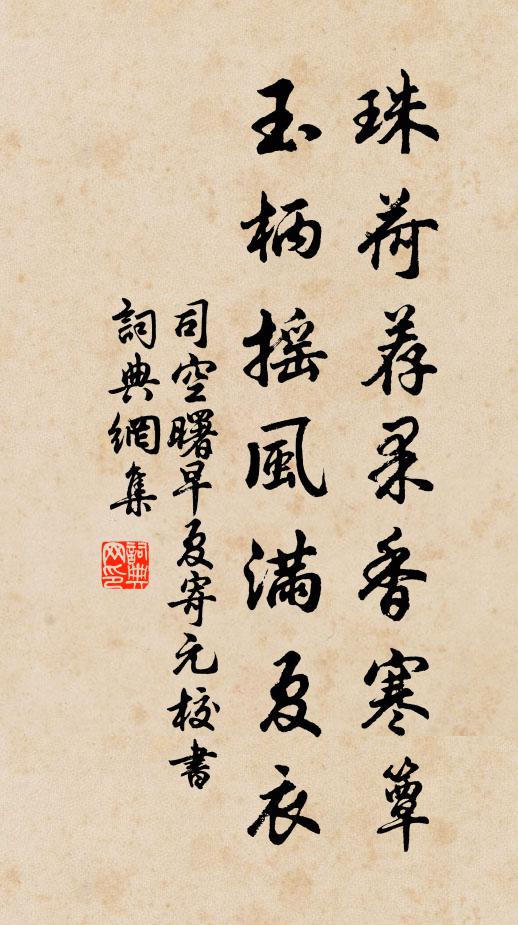 珠荷荐果香寒簟
玉柄摇風满夏衣
司空曙早夏寄元校書
詞典網集
詞典网印